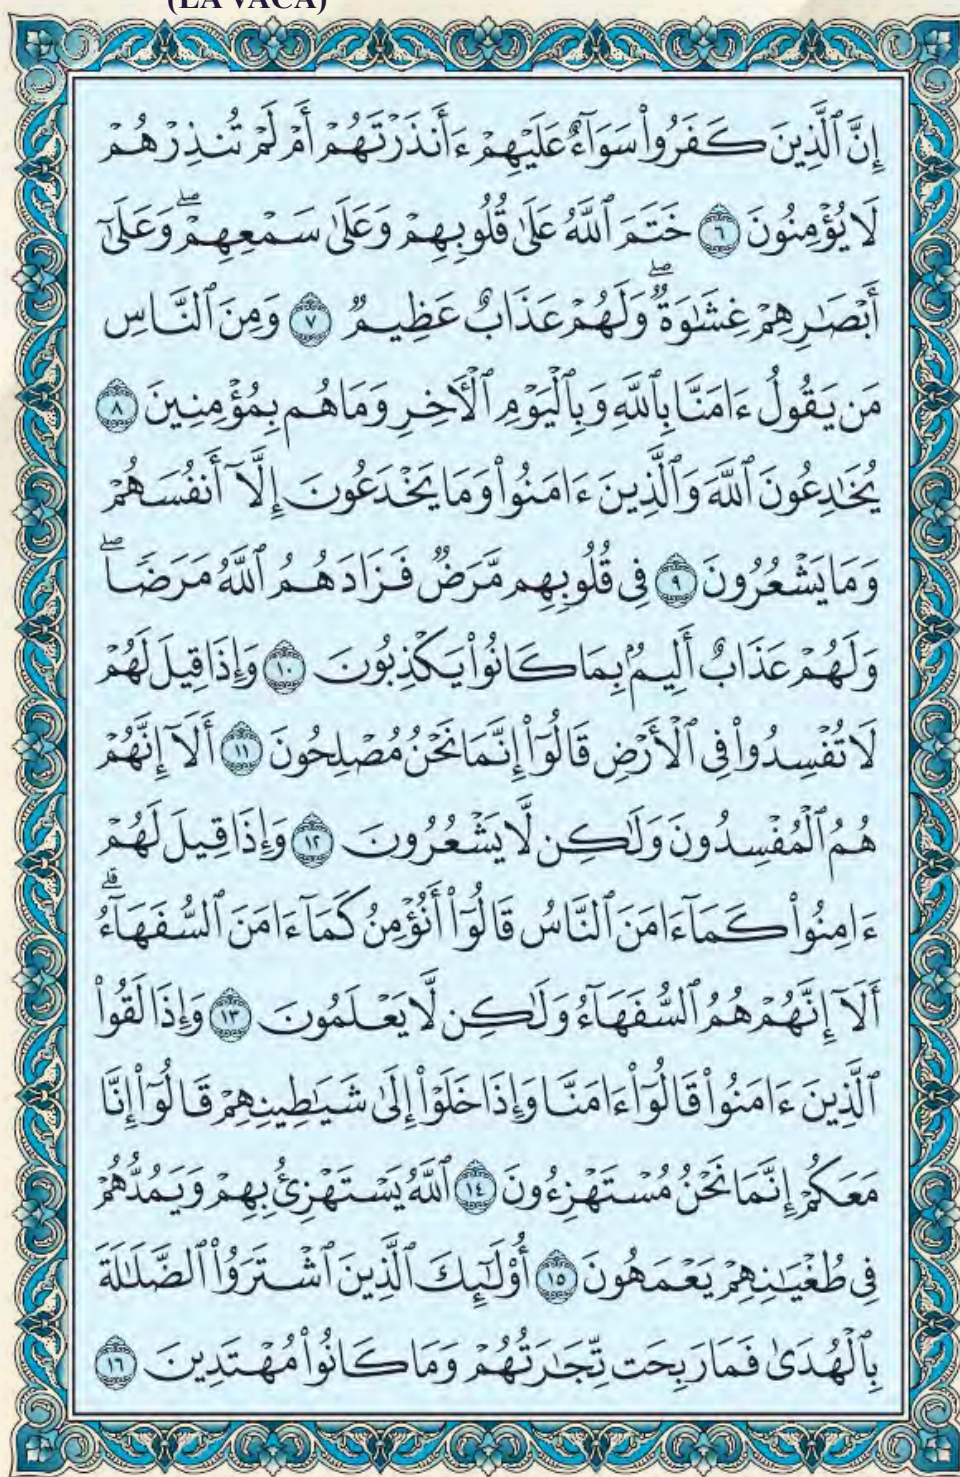 (LA VACA)
إِنَّ ٱلَّذِينَ كَفَرُواْ سَوَآءٌ عَلَيْهِمْ ءَأَنذَرْتَهُمْ أَمْ لَمْ تُنذِرْهُمْ
لَا يُؤْمِنُونَ ٦ خَتَمَ ٱللَّهُ عَلَىٰ قُلُوبِهِمْ وَعَلَىٰ سَمْعِهِمْۖ وَعَلَىٰٓ
أَبْصَٰرِهِمْ غِشَٰوَةٌۖ وَلَهُمْ عَذَابٌ عَظِيمٌ ٧ وَمِنَ ٱلنَّاسِ
مَن يَقُولُ ءَامَنَّا بِٱللَّهِ وَبِٱلْيَوْمِ ٱلْأَخِرِ وَمَا هُم بِمُؤْمِنِينَ ٨
يُخَٰدِعُونَ ٱللَّهَ وَٱلَّذِينَ ءَامَنُواْ وَمَا يَخْدَعُونَ إِلَّآ أَنفُسَهُمْ
وَمَا يَشْعُرُونَ ٩ فِى قُلُوبِهِم مَّرَضٌ فَزَادَهُمُ ٱللَّهُ مَرَضًاۖ
وَلَهُمْ عَذَابٌ أَلِيمٌۢ بِمَا كَانُواْ يَكْذِبُونَ ١٠ وَإِذَا قِيلَ لَهُمْ
لَا تُفْسِدُواْ فِى ٱلْأَرْضِ قَالُوٓاْ إِنَّمَا نَحْنُ مُصْلِحُونَ ١١ أَلَآ إِنَّهُمْ
هُمُ ٱلْمُفْسِدُونَ وَلَٰكِن لَّا يَشْعُرُونَ ١٢ وَإِذَا قِيلَ لَهُمْ
ءَامِنُواْ كَمَآ ءَامَنَ ٱلنَّاسُ قَالُوٓاْ أَنُؤْمِنُ كَمَآ ءَامَنَ ٱلسُّفَهَآءُۗ
أَلَآ إِنَّهُمْ هُمُ ٱلسُّفَهَآءُ وَلَٰكِن لَّا يَعْلَمُونَ ١٣ وَإِذَا لَقُواْ
ٱلَّذِينَ ءَامَنُواْ قَالُوٓاْ ءَامَنَّا وَإِذَا خَلَوْاْ إِلَىٰ شَيَٰطِينِهِمْ قَالُوٓاْ إِنَّا
مَعَكُمْ إِنَّمَا نَحْنُ مُسْتَهْزِءُونَ ١٤ ٱللَّهُ يَسْتَهْزِئُ بِهِمْ وَيَمُدُّهُمْ
فِى طُغْيَٰنِهِمْ يَعْمَهُونَ ١٥ أُوْلَٰٓئِكَ ٱلَّذِينَ ٱشْتَرَوُاْ ٱلضَّلَٰلَةَ
بِٱلْهُدَىٰ فَمَا رَبِحَت تِّجَٰرَتُهُمْ وَمَا كَانُواْ مُهْتَدِينَ ١٦